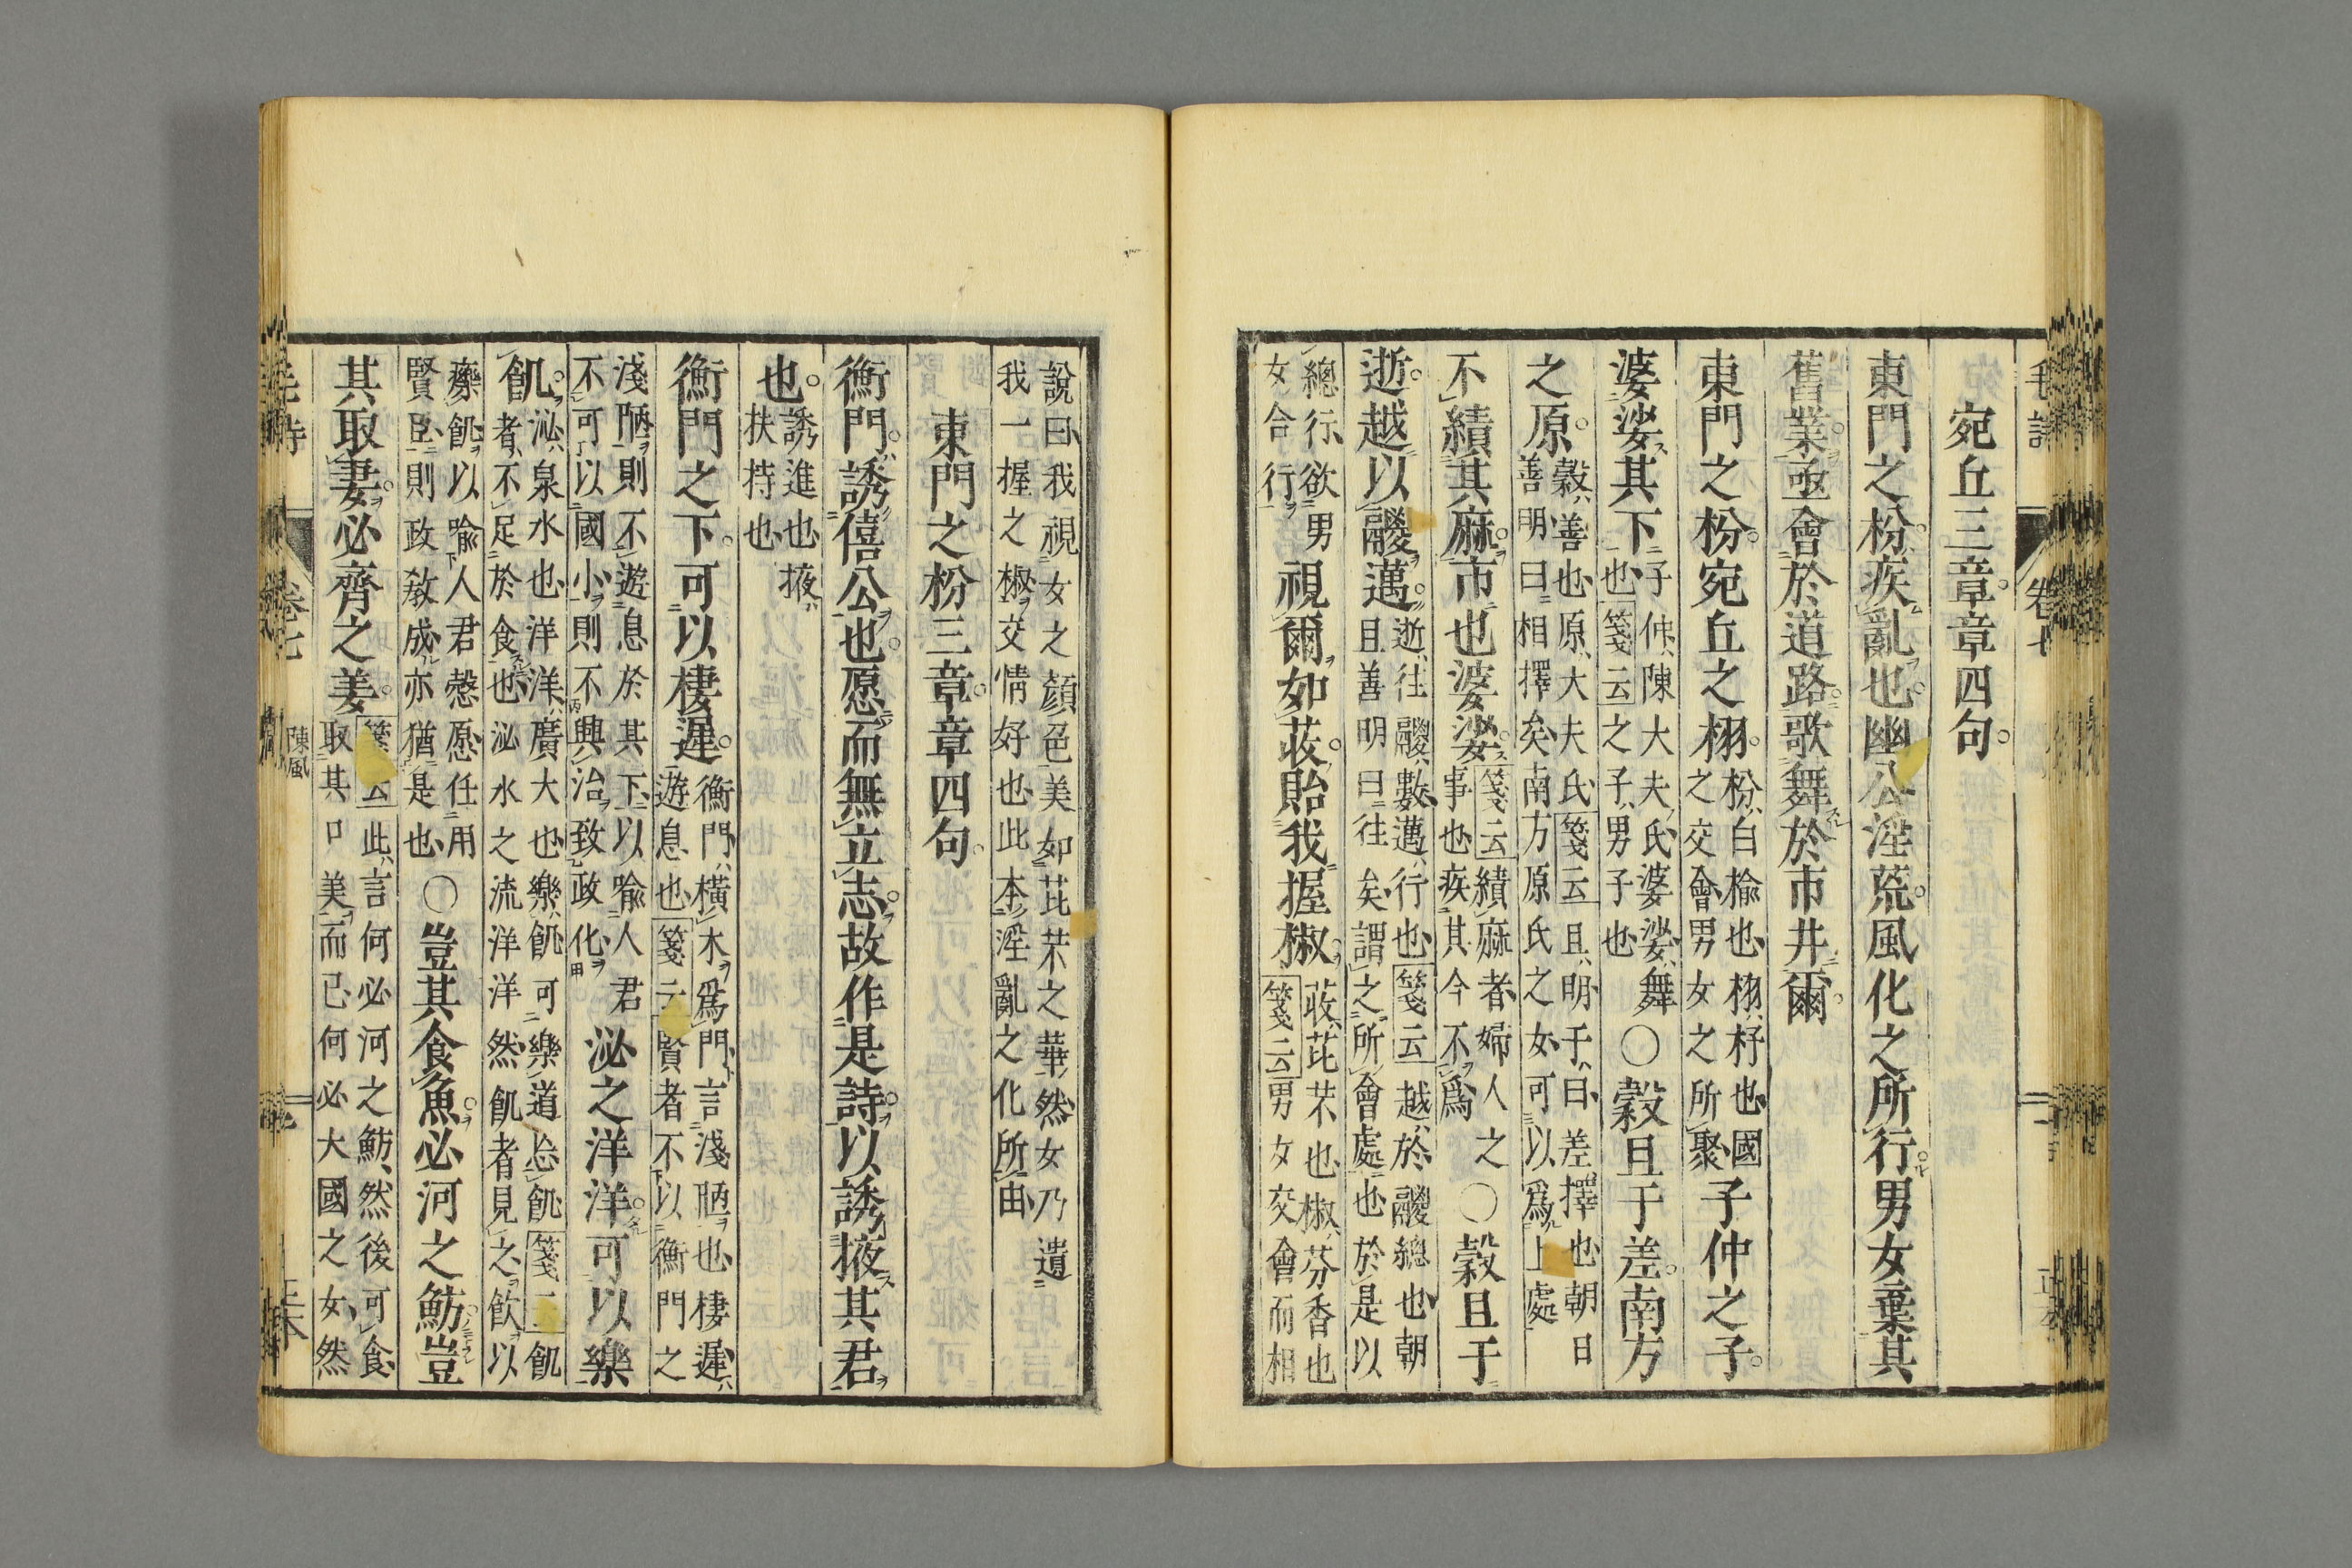 宛丘三章章四句
東門之枌疾亂也幽公淫荒風化之所行男女棄其
舊業亟會於道路歌舞於市井爾
東門之枌宛丘之栩枌白楡也栩杼也國
之交會男女之所聚子仲之子
婆娑其下子仲陳大夫氏婆娑舞
也箋云之子男子也〇穀旦于差南方
之原穀善也原大夫氏箋云旦明于曰差擇也朝日
善明曰相擇矣南方原氏之女可以爲上處
不績其麻市也婆娑箋云績麻者婦人之
事也疾其今不爲〇穀旦于
逝越以鬷邁逝往鬷數邁行也箋云越於鬷總也朝
旦善明曰往矣謂之所會處也於是以
總行欲男
女合行視爾如荍貽我握椒荍芘芣也椒芬香也
箋云男女交會而相
說曰我視女之顏色美如芘芣之華然女乃遺
我一握之椒交情好也此本淫亂之化所由
東門之枌三章章四句
衡門誘僖公也愿而無立志故作是詩以誘掖其君
也誘進也掖
扶持也
衡門之下可以棲遲衡門橫木爲門言淺陋也棲遲
遊息也箋云賢者不以衡門之
淺陋則不遊息於其下以喩人君
不可以國小則不興治致政化泌之洋洋可以樂
飢泌泉水也洋洋廣大也樂飢可樂道忘飢箋云飢
者不足於食也泌水之流洋洋然飢者見之飮以
𤻲飢以喩人君慤愿任用
賢臣則政敎成亦猶是也〇豈其食魚必河之魴豈
其取妻必齊之姜箋云此言何必河之魴然後可食
取其口美而已何必大國之女然
毛詩 卷七 陳風